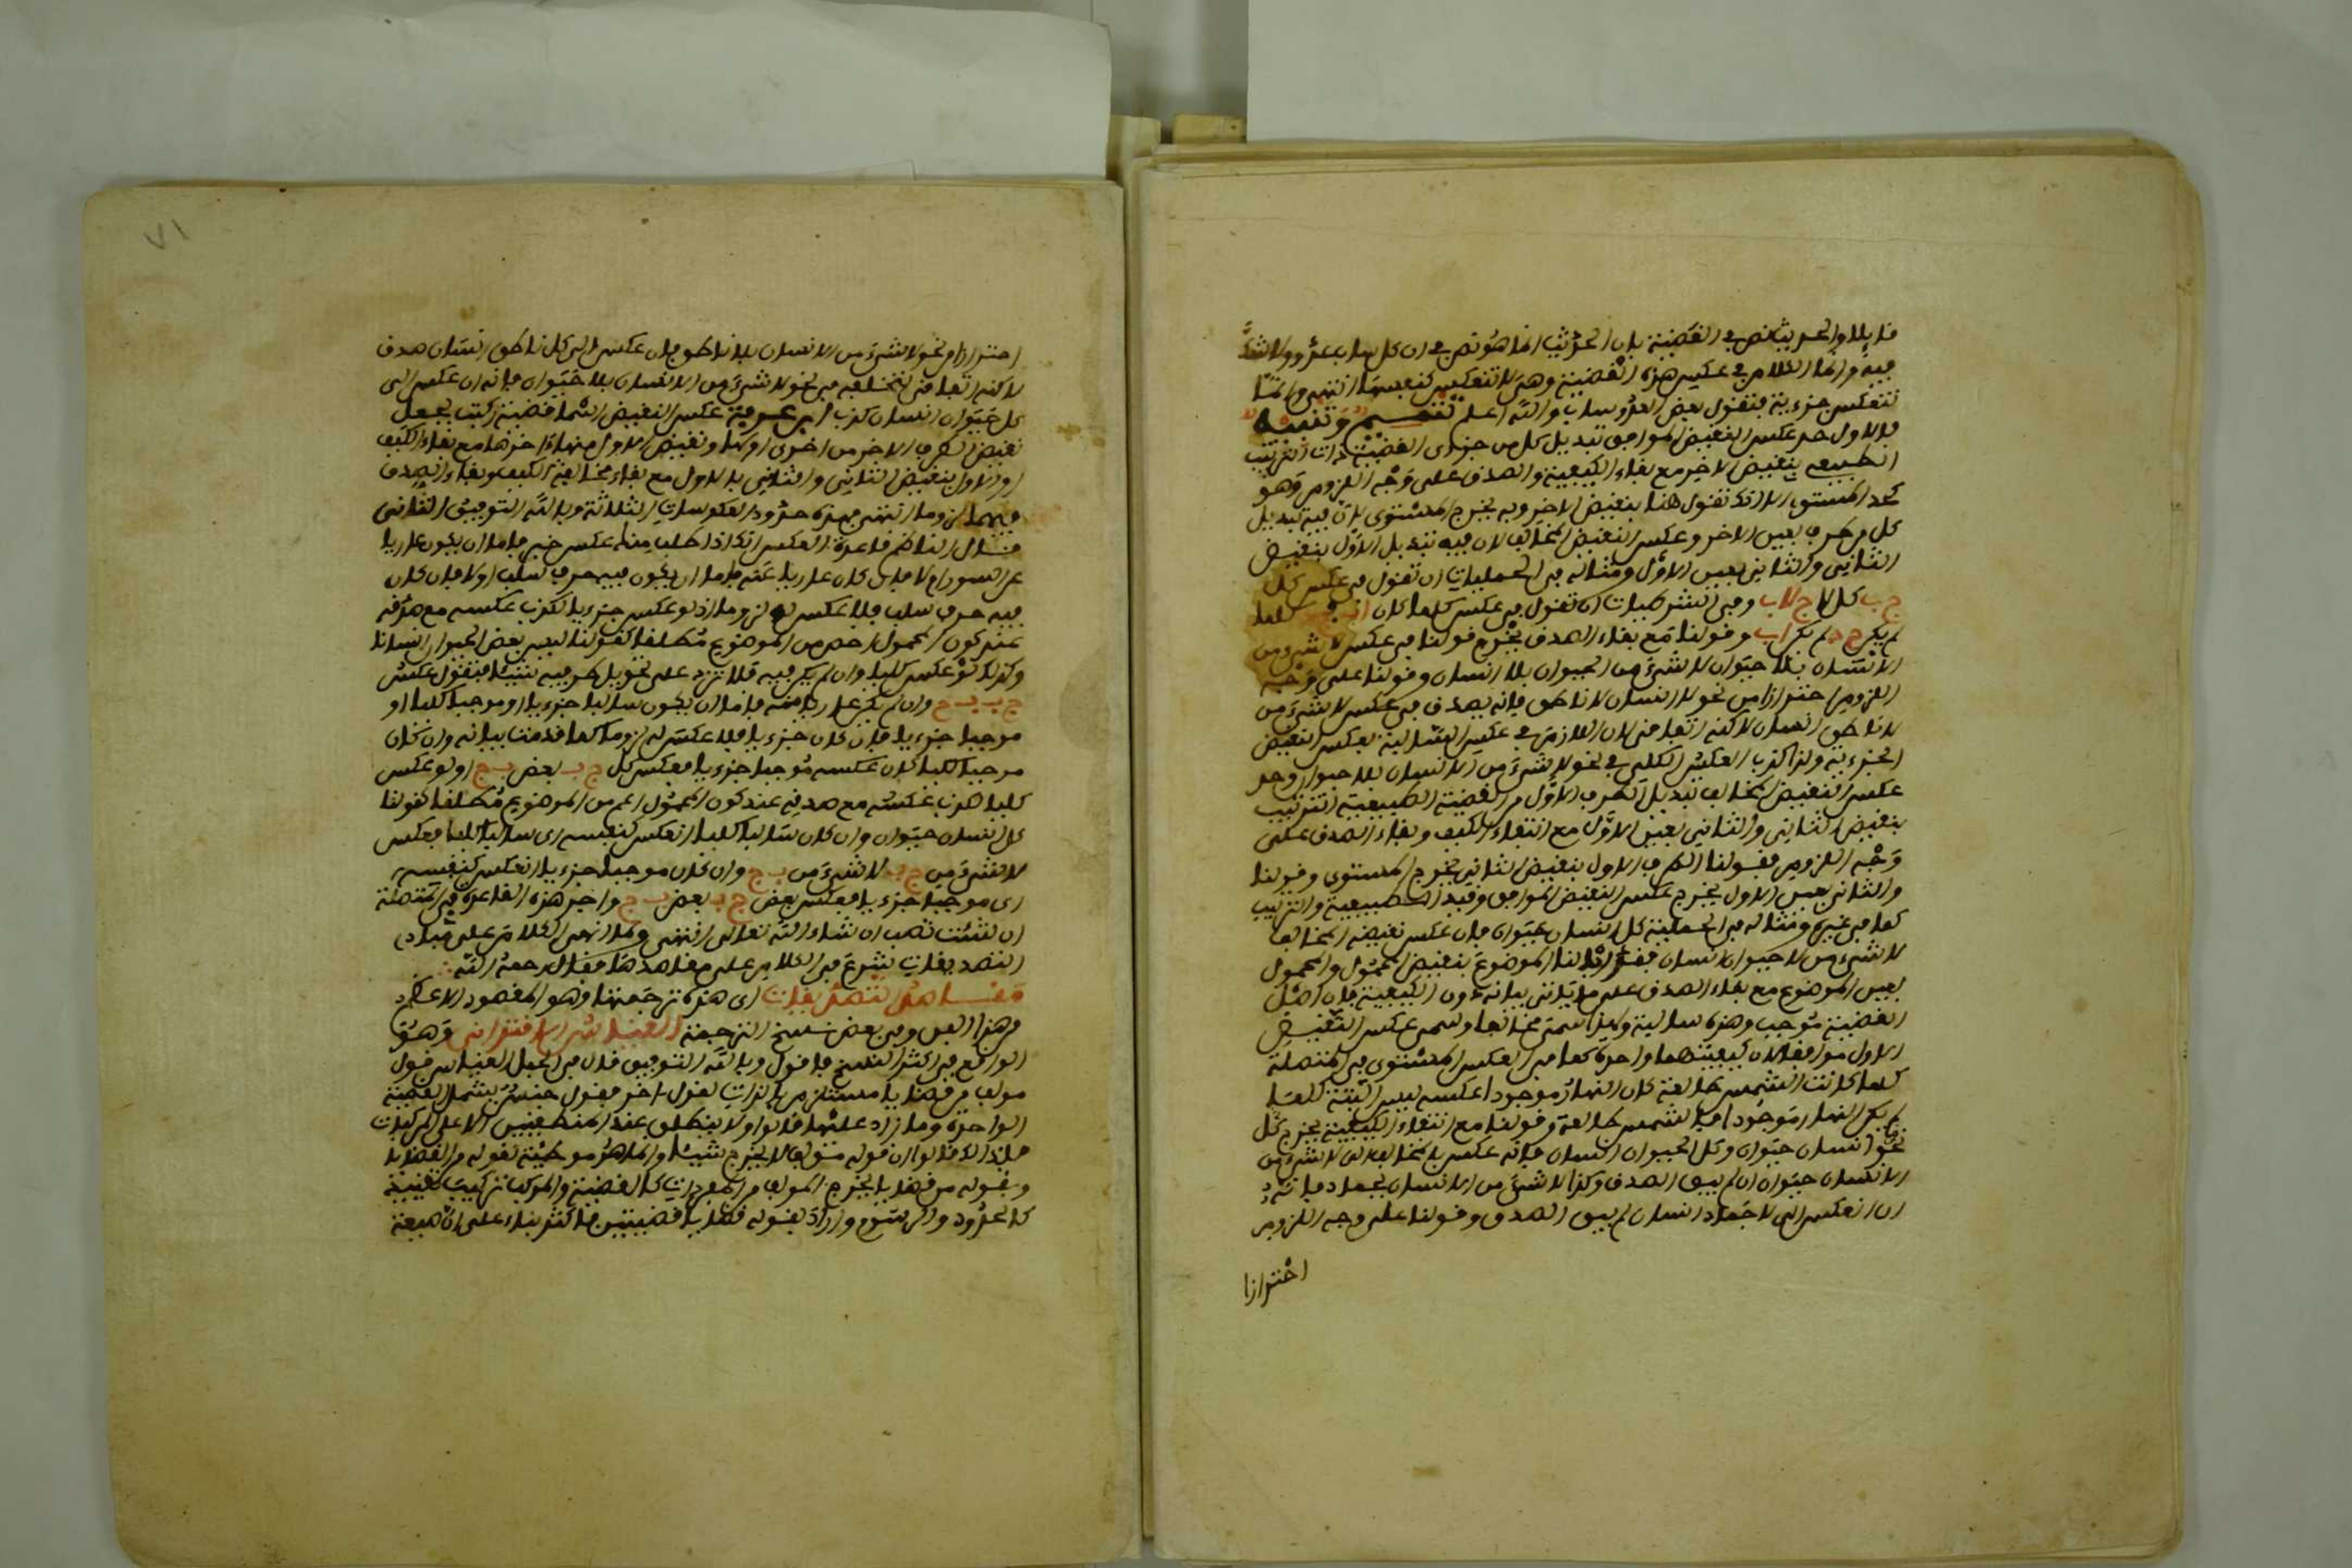 فابلا والحديث نص في القضية بان الحديث انما هو نص في ان كل ساب عدو ولا شك
فيه وانما الكلام في عكس هذه القضية وهي لا تنعكس كنفسها انتهى وانما
تنعكس جزءية فتقول بعض العدو ساب والله اعلم
فالاول حد عكس النقيض الموافق تبديل كل من جزءي القضية ذات الترتيب
الطبيعي بنقيض الاخر مع بقاء الكيفية والصدق على وجه اللزوم وهو
كحد المستوي الا انك تقول هنا بنقيض الاخر وبه يخرج المستوي لان فيه تبديل
كل طرف بعين الاخر وعكس النقيض المخالف لان فيه تبديل الاول بنقيض
الثاني والثاني بعين الاول ومثاله في الحمليات ان تقول في عكس كل
ج ب كل لا ج لا ب وفي الشرطيات ان تقول في عكس كلما كان
لم يكن ج د لم يكن ا ب وقولنا مع بقاء الصدق يخرج قولنا في عكس لا شيء من
الانسان بلا حيوان لا شيء من الحيوان بلا انسان وقولنا على وجه
اللزوم احترازا من نحو لا انسان لا ناطق فانه يصدق في عكس لا شيء من
لا ناطق انسان لاكنه اتفاقي لان اللازم في عكس السالبة بعكس النقيض
الجزءية ولذا كذب العكس الكلي في نحو لا شيء من الانسان بلا حيوان وحد
عكس النقيض المخالف تبديل الطرف الاول من القضية الطبيعية الترتيب
بنقيض الثاني والثاني بعين الاول مع انتفاء الكيف وبقاء الصدق على
وجه اللزوم فقولنا الطرف الاول بنقيض الثاني يخرج المستوي وقولنا
والثاني بعين الاول يخرج عكس النقيض الموافق وقيد الطبيعية والترتيب
كما في غيره ومثاله في الحملية كل انسان حيوان فان عكس نقيضه المخالف
لا شيء من لا حيوان انسان فقد ابدلنا الموضوع بنقيض المحمول والمحمول
بعين الموضوع مع بقاء الصدق على ما ياتي بيانه دون الكيفية فان اصل
القضية موجب وهذه سالبة ولذا سمي مخالفا وسمي عكس النقيض
الاول موافقا لان كيفيتهما واحدة كما في العكس المستوي في المتصلة
كلما كانت الشمس طالعة كان النهار موجودا عكسه ليس البتة كلما
لم يكن النهار موجودا فالشمس طالعة وقولنا مع انتفاء الكيفية يخرج كل
نحو انسان حيوان وكل الحيوان انسان فانه عكس بالمخالف الى لا شيء من
الانسان حيوان ان لم يبق الصدق وكذا لا شيء من الانسان بجماد فانه
ان انعكس الى لا جماد انسان لم يبق الصدق وقولنا على وجه اللزوم
احترازا
٧١
احترازا من نحو لا شيء من الانسان بلا ناطق فان عكس الى كل ناطق انسان صدق
لاكنه اتفاقي لتخلفه في نحو لا شيء من الانسان بلا حيوان فانه ان عكس الى
كل حيوان انسان كذب ابن عرفة عكس النقيض اسما قضية ركبت بجعل
نقيض الطرف الاخر من اخرى اولها ونقيض الاول منها اخرها مع بقاء الكيف
او الاول بنقيض الثاني والثاني بالاول مع بقاء مخالفة الكيف وبقاء الصدق
فيهما لزوما انتهى فهذه حدود العكوسات الثلاثة وبالله التوفيق الثاني
قال الناظم قاعدة العكس انك اذا طلب منك عكس خبر فاما ان يكون عاريا
عن السور او لا فان كان عاريا عنه فاما ان يكون فيه حرف سلب او لا فان كان
فيه حرف سلب فلا عكس له لزوما اذ لو عكس جزءيا لكذب عكسه مع صدقه
عند كون المحمول اخص من الموضوع مطلقا كقولنا ليس بعض الحيوان انسانا
وكذلك لو عكس كليا وان لم يكن فيه فلا تزد على تحويل طرفيه شيئا فتقول عكس
ج ب ب ج وان لم يكن عاريا عنه فاما ان يكون سالبا جزءيا او موجبا كليا او
موجبا جزءيا فان كان جزءيا فلا عكس له لزوما كما قدمنا بيانه وان كان
موجبا كليا كان عكسه موجبا جزءيا فعكس كل ج ب بعض ب ج اذ لو عكس
كليا كذب عكسه مع صدقه عند كون المحمول اعم من الموضوع مطلقا كقولنا
كل انسان حيوان وان كان سالبا كليا انعكس كنفسه اى سالبا كليا فعكس
لا شيء من ج ب لا شيء من ب ج وان كان موجبا جزءيا انعكس كنفسه
اى موجبا جزءيا فعكس بعض ج ب بعض ب ج واجر هذه القاعدة في المتصلة
ان شئت تصب ان شاء الله تعالى انتهى ولما انهى الكلام على مبادى
التصديقات شرع في الكلام على مقاصدها فقال رحمه الله
مقاصد التصديقات اى هذه ترجمتها وهو المقصود الاعظم
من هذا الفن وفي بعض نسخ الترجمة القياس الاقتراني وهو
الواقع في اكثر النسخ فاقول وبالله التوفيق قال في الجمل القياس قول
مولف من قضايا مستلزم بالذات لقول اخر فقول جنس يشمل القضية
الواحدة وما زاد عليها قالوا ولا ينطلق عند المنطقيين الا على المركبات
فلذلك قالوا ان قوله مؤلف لا يخرج شيئا وانما هو توطئة لقوله من القضايا
وبقوله من قضايا يخرج المولف من المفردات كالقضية والمركبات تركيب تقييد
كالحدود والرسوم واراد بقوله قضايا قضيتين فاكثر بناء على ان صيغة